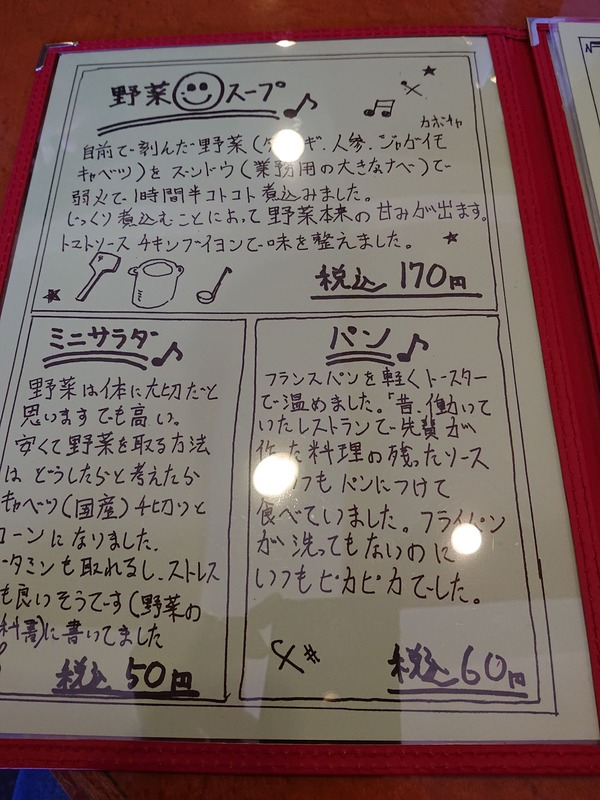 野菜 スープ
カボチャ
自前で刻んだ野菜(タ ギ.人参.ジャガイモ
キャベツ)をズンドウ(業務用の大きなナベ)で
弱火で1時間半コトコト煮込みました。
じっくり煮込むことによって野菜本来の甘みが出ます。
トマトソース チキンブイヨンで味を整えました。
税込 170円
ミニサラダ
野菜は体に大切だと
思いますでも高い。
安くて野菜を取る方法
は どうしたらと考えたら
キャベツ(国産)千切りと
コーンになりました.
ータミンも取れるし、ストレス
も良いそうです(野菜の
科書)に書いてました
税込 50円
パン
フランスパンを軽くトースター
で温めました。「昔.働いて
いたレストランで先輩が
作 た料理の残ったソース
つも パンにつけて
食べていました。フライパン
が洗ってもないのに
いつもピカピカでした。
税込 60円